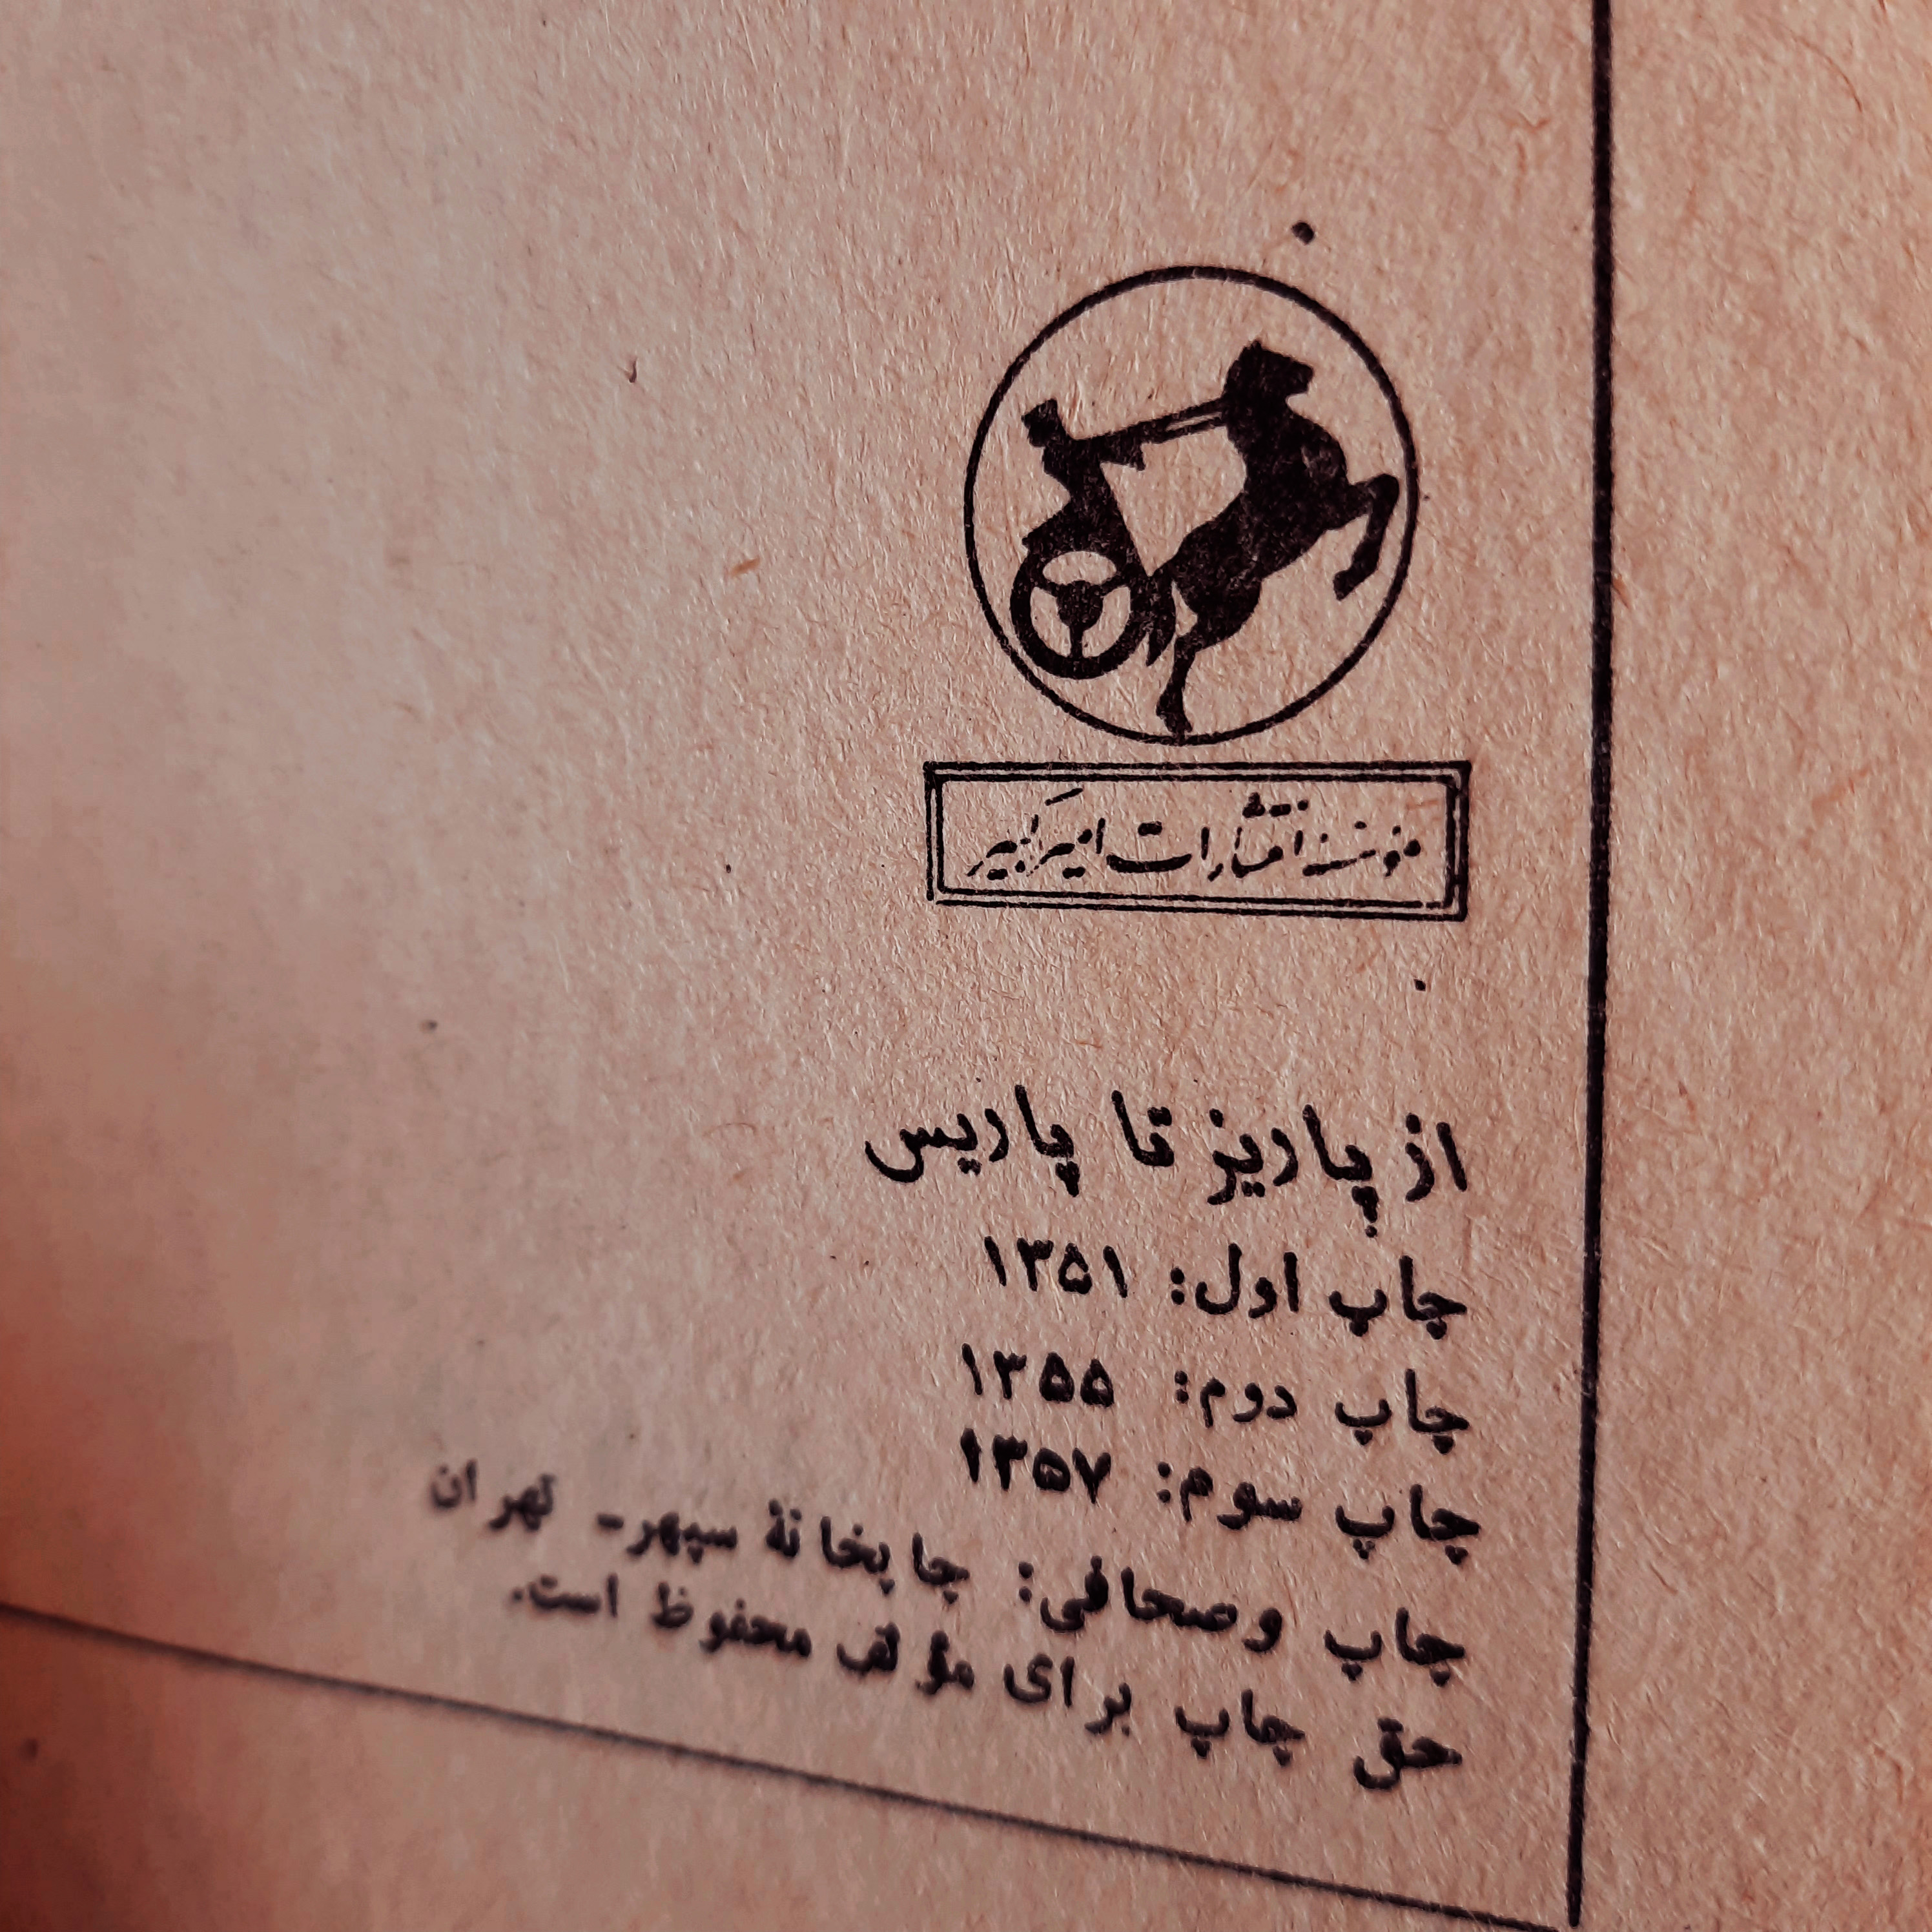 مؤسسهٔ انتشارات امیرکبیر
از پاریز تا پاریس
چاپ اول: ۱۳۵۱
چاپ دوم: ۱۳۵۵
چاپ سوم: ۱۳۵۷
چاپ وصحافی: چاپخانهٔ سپهر- تهران
حق چاپ برای مؤلف محفوظ است.